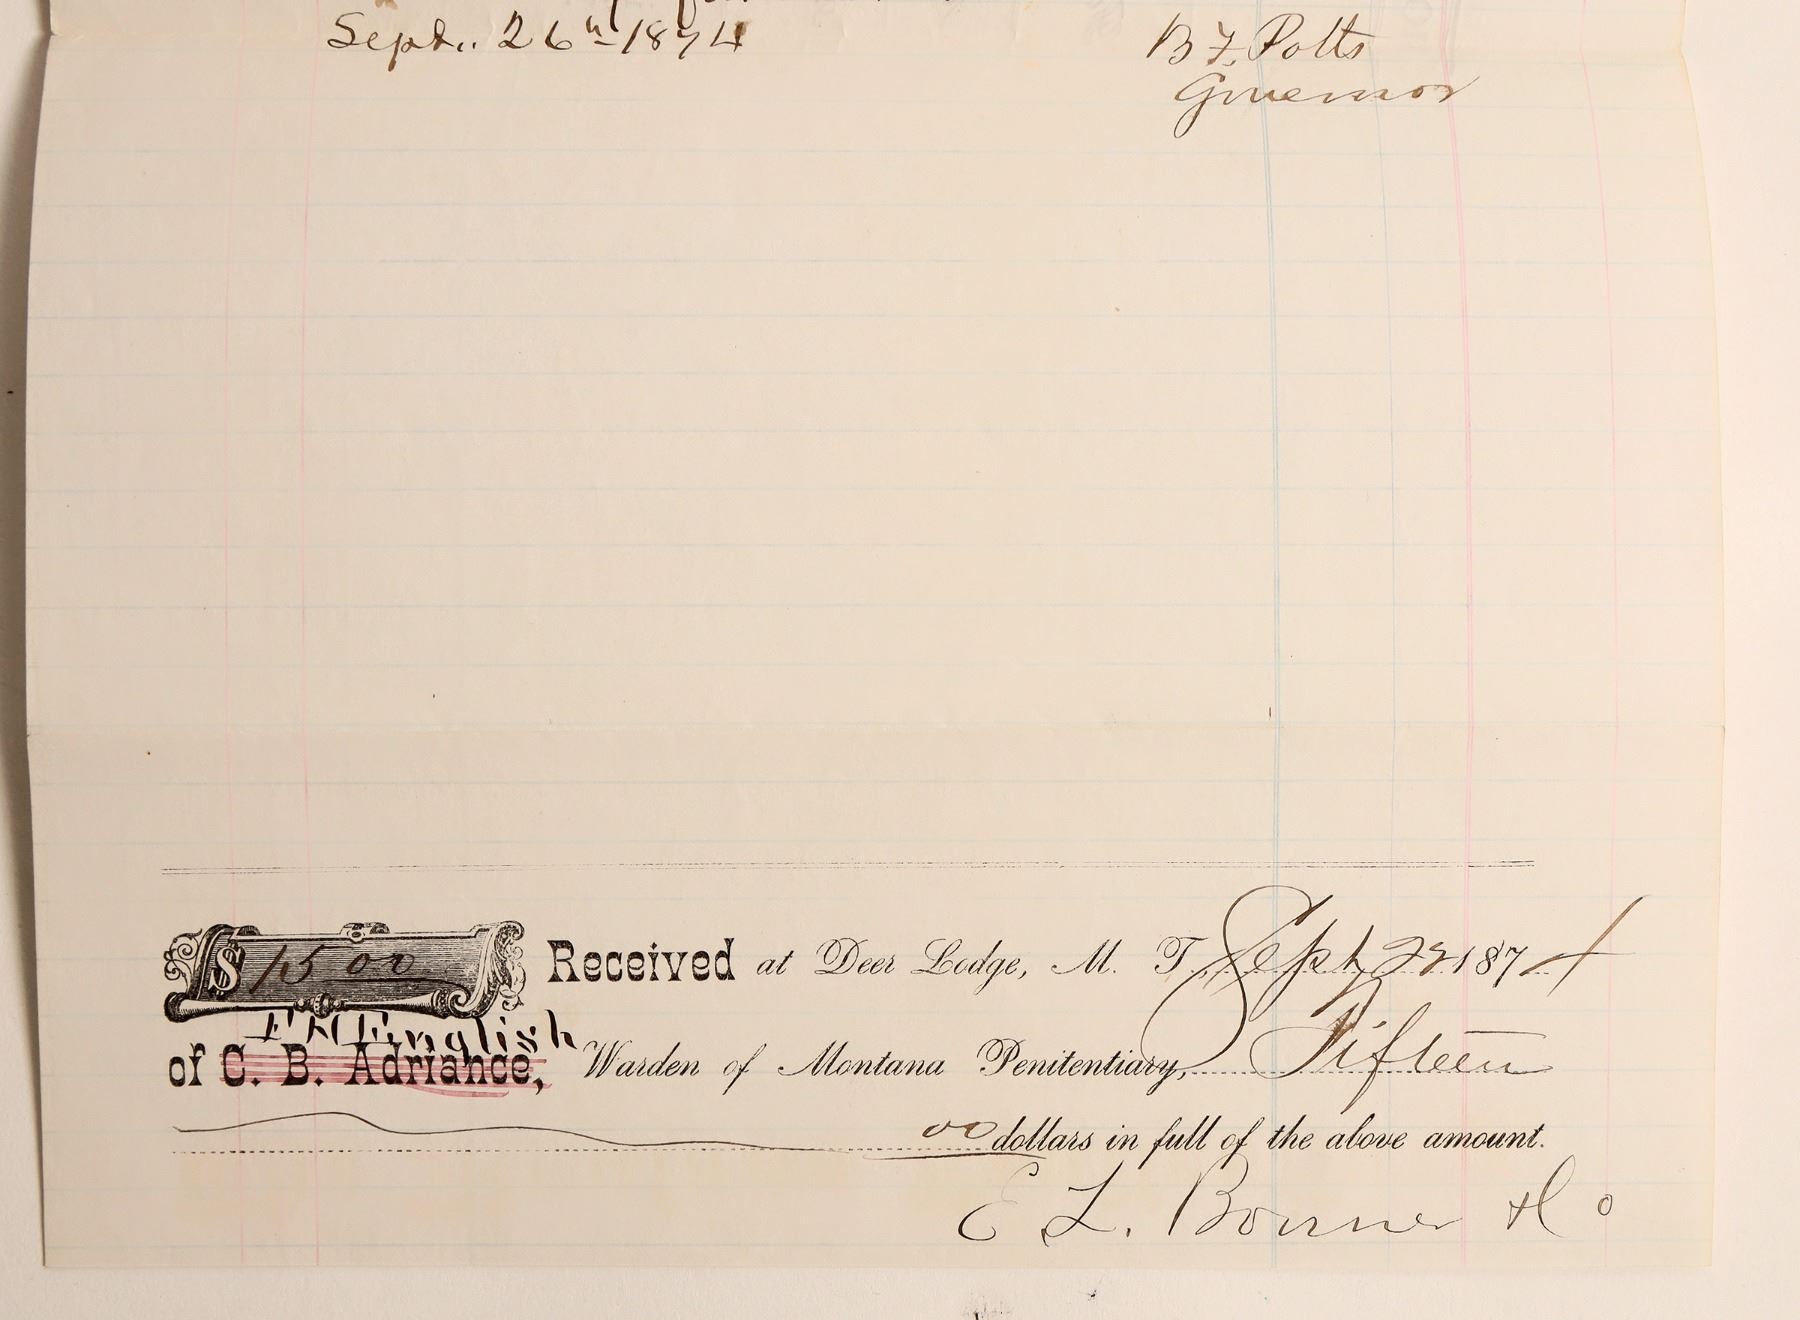 Sept. 26th 1874
B F. Potts
Governor
$ 15 00 Received at Deer Lodge, M. T. Sept 22 1874
F H English
of C. B. Adriance, Warden of Montana Penitentiary, Fifteen
00 dollars in full of the above amount.
E L. Bonner & Co